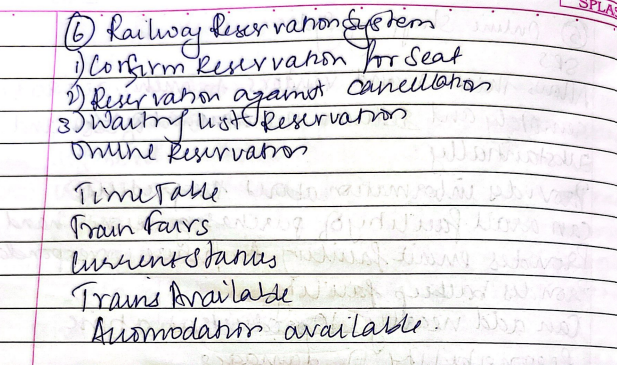 SPLAS
⑥ Railway Reservation System
1) Confirm Reservation for Seat
2) Reservation against Cancellation
3) Waiting List Reservation
Online Reservation
Time Table
Train Fairs
Current Status
Trains Available
Accomodation available